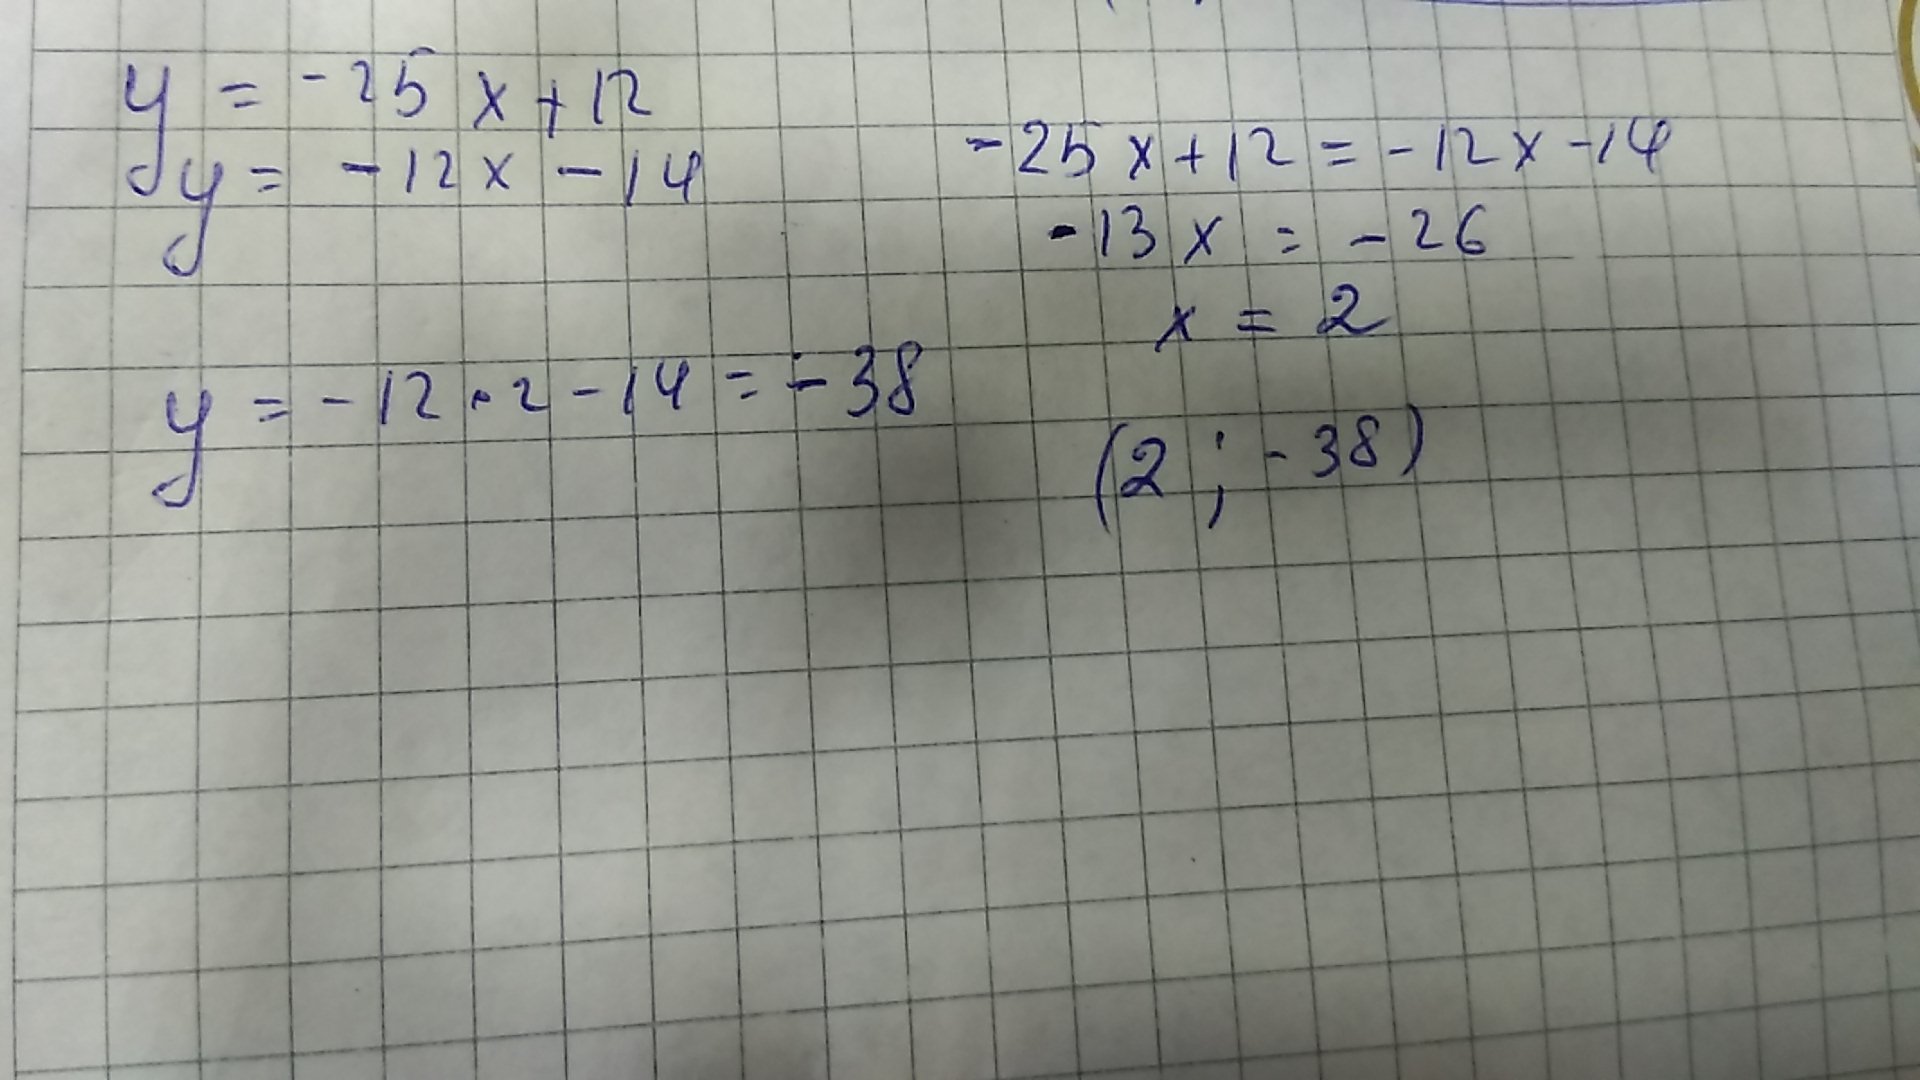 y = -25x + 12
y = -12x - 14
-25x + 12 = -12x - 14
-13x = -26
x = 2
y = -12 · 2 - 14 = -38
(2 ; -38)